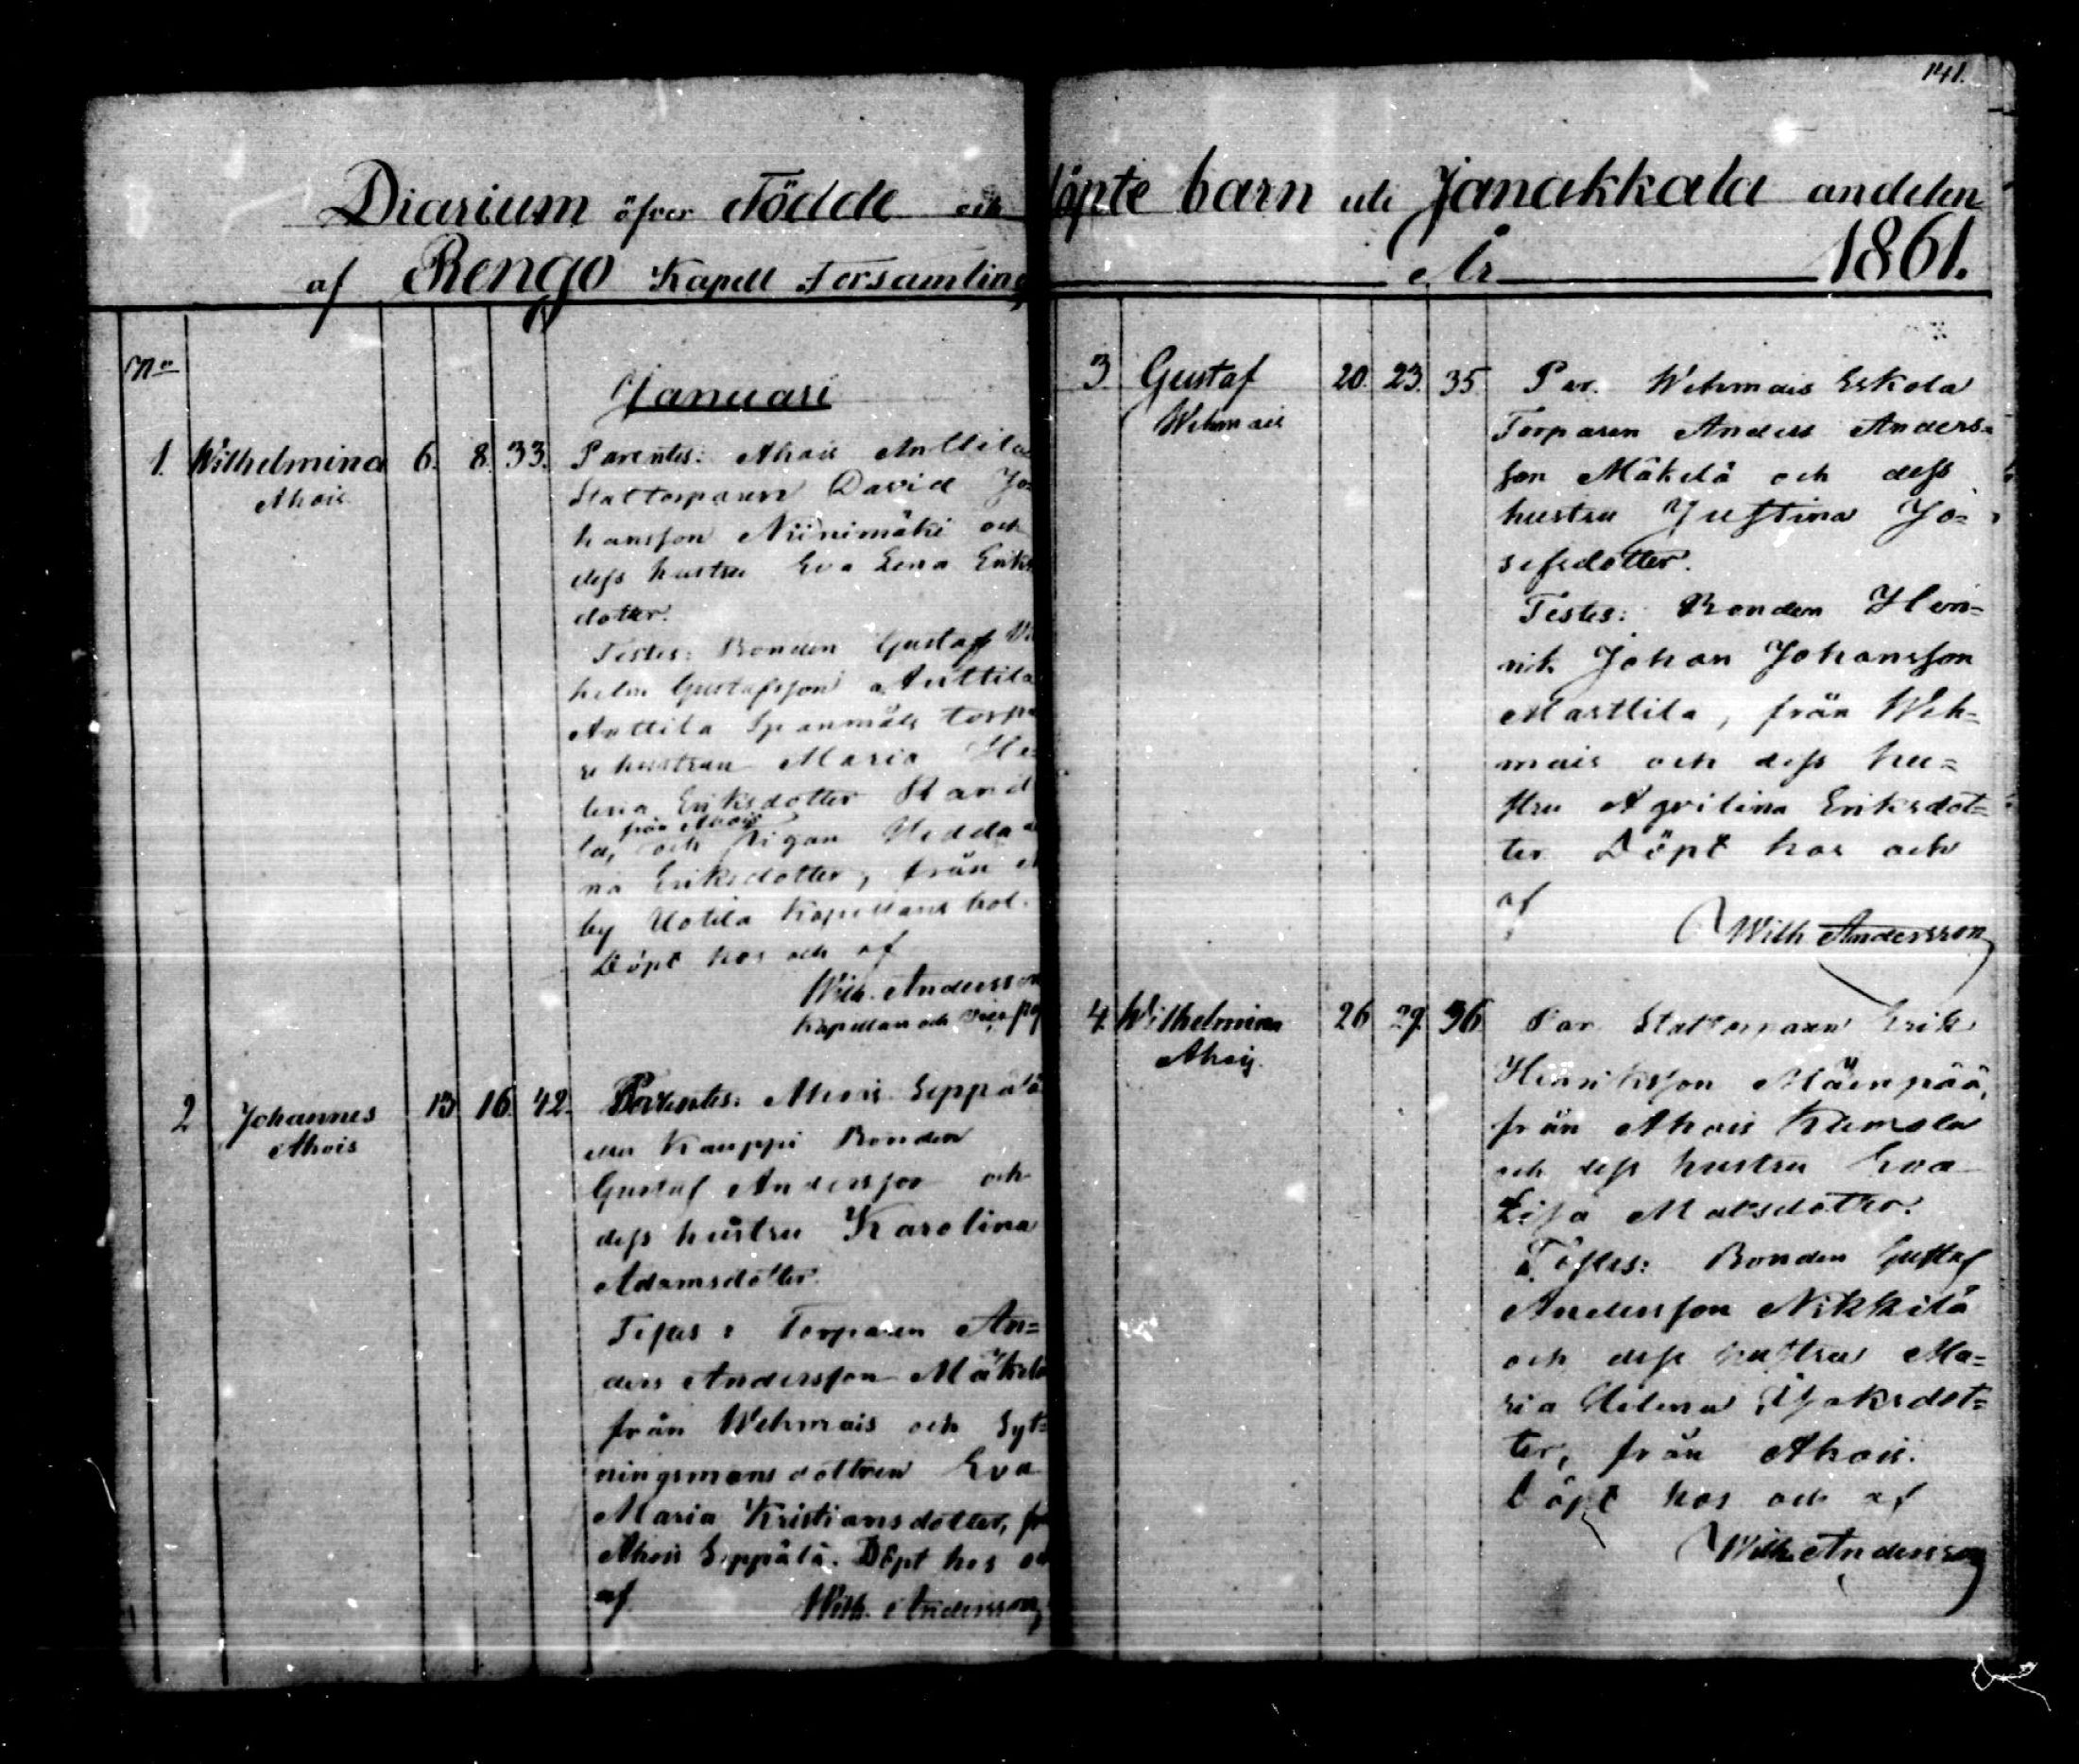 141.
Diarium öfver Födde och döpte barn uti Janakkala andelen
af Rengo Kapell Församling År 1861.
No
Januari
1. Wilhelmina 6. 8. 33. Parentes: Ahois Anttila
Ahois
Stattorparen David Jo=
hansson Niinimäki och
dess hustru Eva Lena Eriks
dotter.
Testes: Bonden Gustaf Wil
helm Gustafsson Anttila
Anttila Spanmåls torpa
re hustrun Maria He=
lena Eriksdotter
från Ahois
la, och Pigan Hedda
na Eriksdotter, från
by Uotila Kapellans bol.
Döpt hos och af
Wilh. Andersson
Kapellan och
2 Johannes 13 16. 42. Parentes: Ahois Seppälä
Ahois
eller Kauppi Bonden
Gustaf Andersson och
dess hustru Karolina
Adamsdotter.
Testes: Torparen An=
ders Andersson Mäkelä
från Wehmais och Syt=
ningsmans dottren Eva
Maria Kristiansdotter, fr
Ahois Seppälä. Döpt hos och
af Wilh. Andersson
3 Gustaf 20. 23. 35. Par. Wehmais Eskola
Wehmais
Torparen Anders Anders=
son Mäkelä och dess
hustru Justina Jo=
sefsdotter.
Testes: Bonden Hen=
rik Johan Johansson
Marttila, från Weh=
mais och dess hu=
stru Agvilina Eriksdot=
ter Döpt hos och
af
Wilh Andersson
4. Wilhelmina 26 29. 36 Par Stattorparen Erik
Ahois.
Henriksson Mäenpää,
från Ahois Kumola
och dess hustru Eva
Lisa Matsdotter.
Testes: Bonden Gustaf
Andersson Nikkilä
och dess hustru Ma=
ria Helena Isaksdot=
ter, från Ahois.
Döpt hos och af
Wilh. Andersson